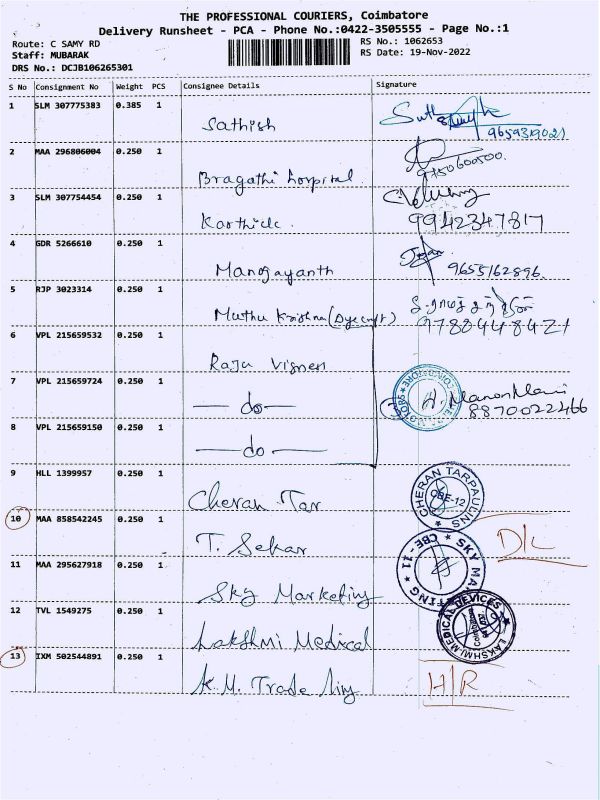 THE PROFESSIONAL COURIERS, Coimbatore
Delivery Runsheet - PCA - Phone No.:0422-3505555 - Page No.:1
Route: C SAMY RD
Staff: MUBARAK
DRS No.: DCJB106265301
RS No.: 1062653
RS Date: 19-Nov-2022
S No Consignment No Weight PCS Consignee Details Signature
1 SLM 307775383 0.385 1
Sathish
9659319021
2 MAA 296806004 0.250 1
Bragathi hospital
9750600500.
3 SLM 307754454 0.250 1
Karthick.
9942347817
4 GDR 5266610 0.250 1
Manojayanth
9655162896
5 RJP 3023314 0.250 1
Muthu Krishna
9780448421
6 VPL 215659532 0.250 1
Raju Vignesh
7 VPL 215659724 0.250 1
— do —
8870022466
8 VPL 215659150 0.250 1
— do —
9 HLL 1399957 0.250 1
Cheran Tar
CHERAN TARPAULINS
CBE-12
10 MAA 858542245 0.250 1
T. Sekar
D/L
11 MAA 295627918 0.250 1
Sky Marketing
SKY MARKETING
CBE - 11
12 TVL 1549275 0.250 1
Lakshmi Medical
LAKSHMI MEDICAL DEVICES
13 IXM 502544891 0.250 1
K.M. Trade
H/R